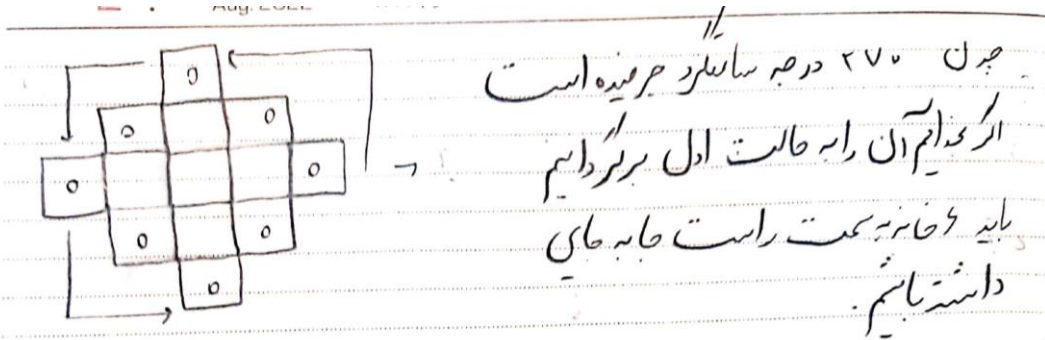 Aug. 2022
جدول ۲۷۰ درجه ساعتگرد چرخیده است
اگر بخواهیم آن را به حالت اول برگردانیم
باید ۶ خانه به سمت راست جا به جایی
داشته باشیم.